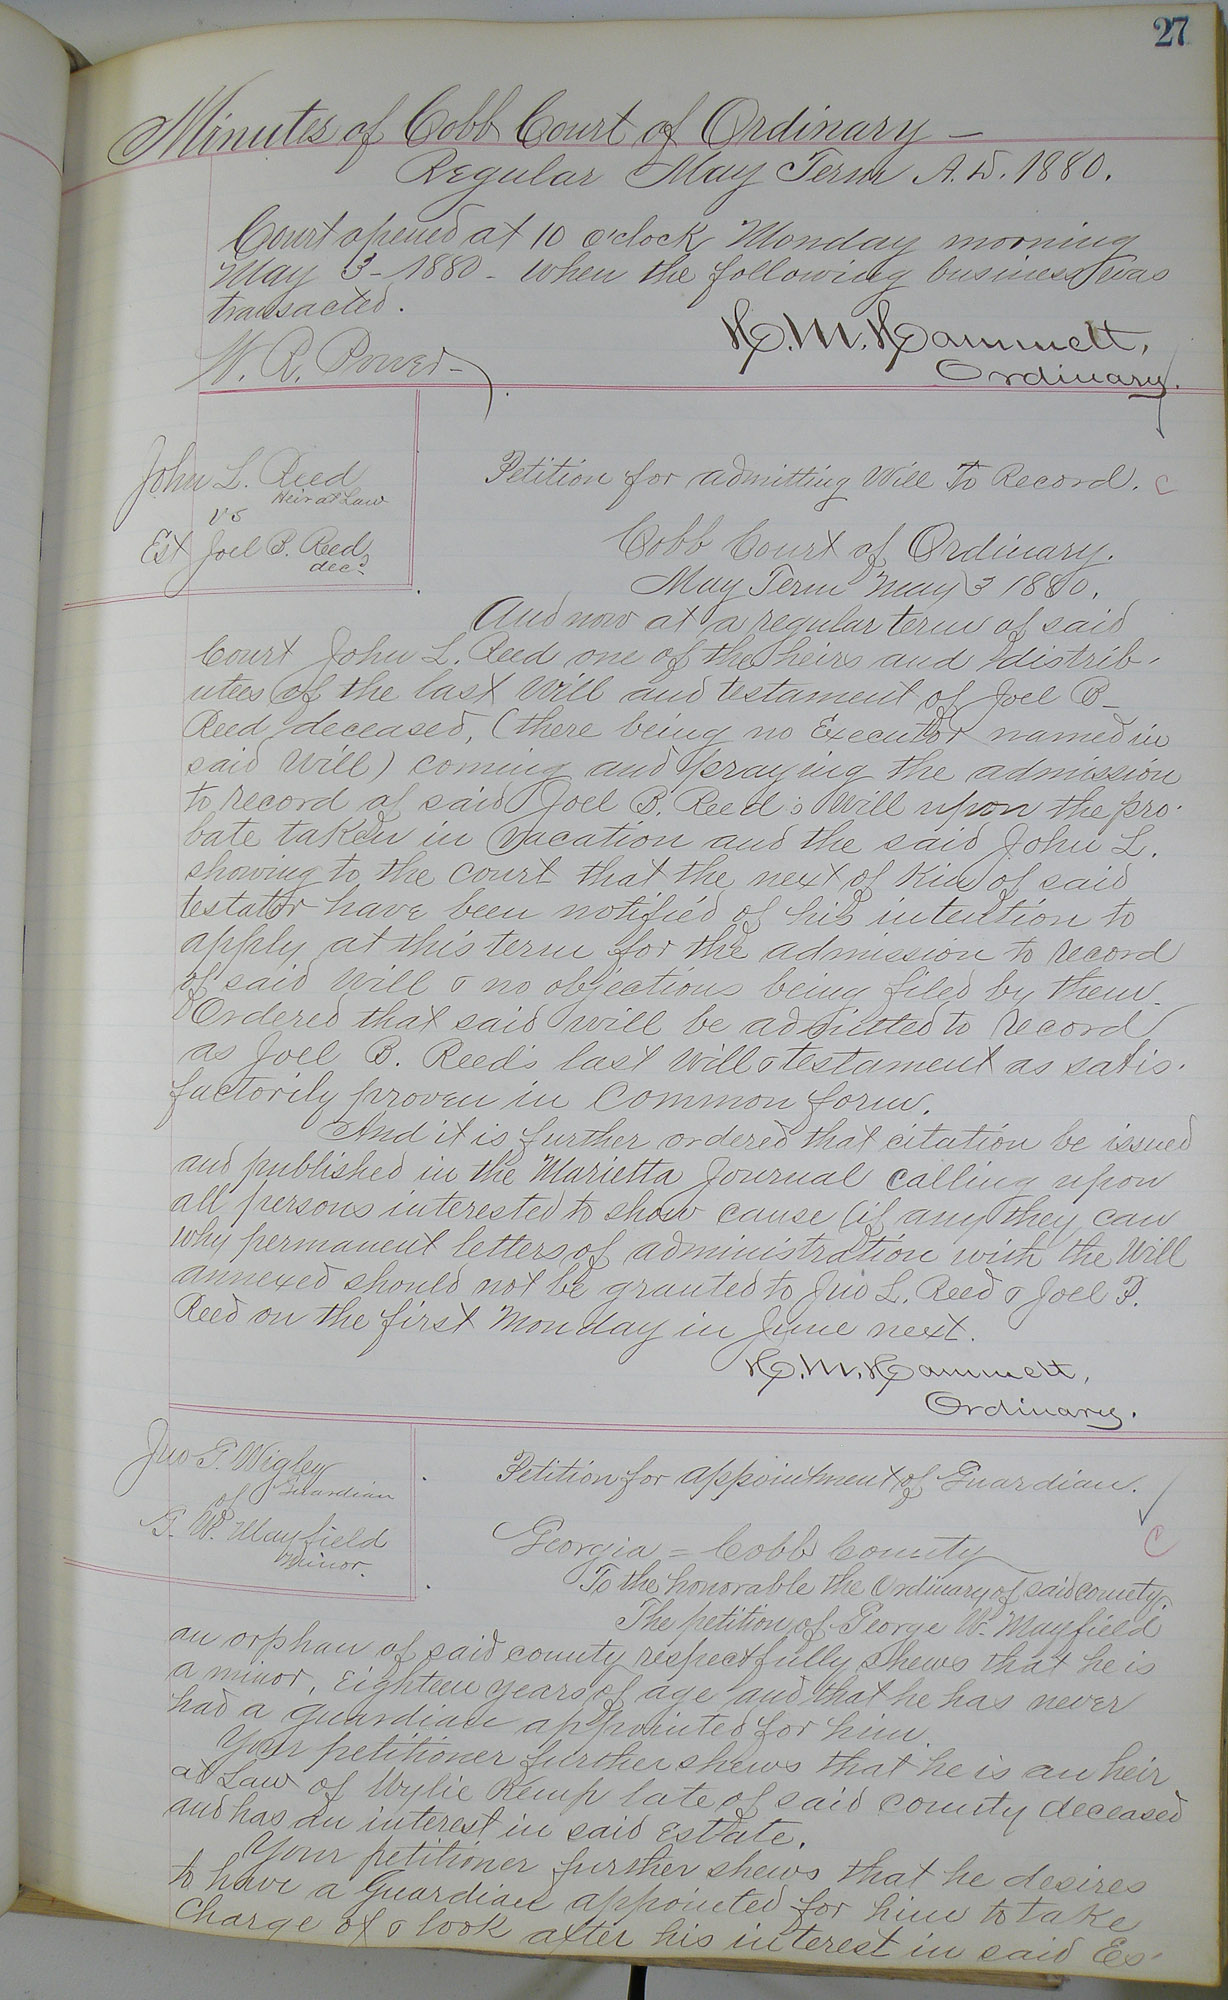 27
Minutes of Cobb Court of Ordinary –
Regular May Term A.D. 1880.
Court opened at 10 o'clock Monday morning
May 3 - 1880 - when the following business was
transacted.
H. M. Hammett,
Ordinary.
W. R. Power -
John L. Reed
Heir at Law
vs
Est Joel B. Reed,
decd
Petition for admitting Will To Record. C
Cobb Court of Ordinary.
May Term May 3 1880.
And now at a regular term of said
Court John L. Reed one of the heirs and distrib-
utees of the last Will and testament of Joel B -
Reed deceased, (there being no Executor named in
said Will) coming and praying the admission
to record of said Joel B. Reed's Will upon the pro-
bate taken in vacation and the said John L.
showing to the court that the next of Kin of said
testator have been notified of his intention to
apply at this term for the admission to record
of said Will & no objections being filed by them -
Ordered that said will be admitted to record
as Joel B. Reed's last Will & testament as satis-
factorily proven in Common form.
And it is further ordered that citation be issued
and published in the Marietta Journal calling upon
all persons interested to show cause (if any they can
why permanent letters of administration with the Will
annexed should not be granted to Jno L. Reed & Joel P.
Reed on the first Monday in June next.
H. M. Hammett,
Ordinary.
Jno T. Wigley
Guardian
of
G. W. Mayfield
Minor.
Petition for appointment of Guardian.
C
Georgia = Cobb County
To the honorable the Ordinary of said county.
The petition of George W. Mayfield
an orphan of said county respectfully shews that he is
a minor, Eighteen years of age and that he has never
had a guardian appointed for him.
Your petitioner further shews that he is an heir
at Law of Wylie Kemp late of said county deceased
and has an interest in said Estate.
Your petitioner further shews that he desires
to have a Guardian appointed for him to take
Charge of & look after his interest in said Es-